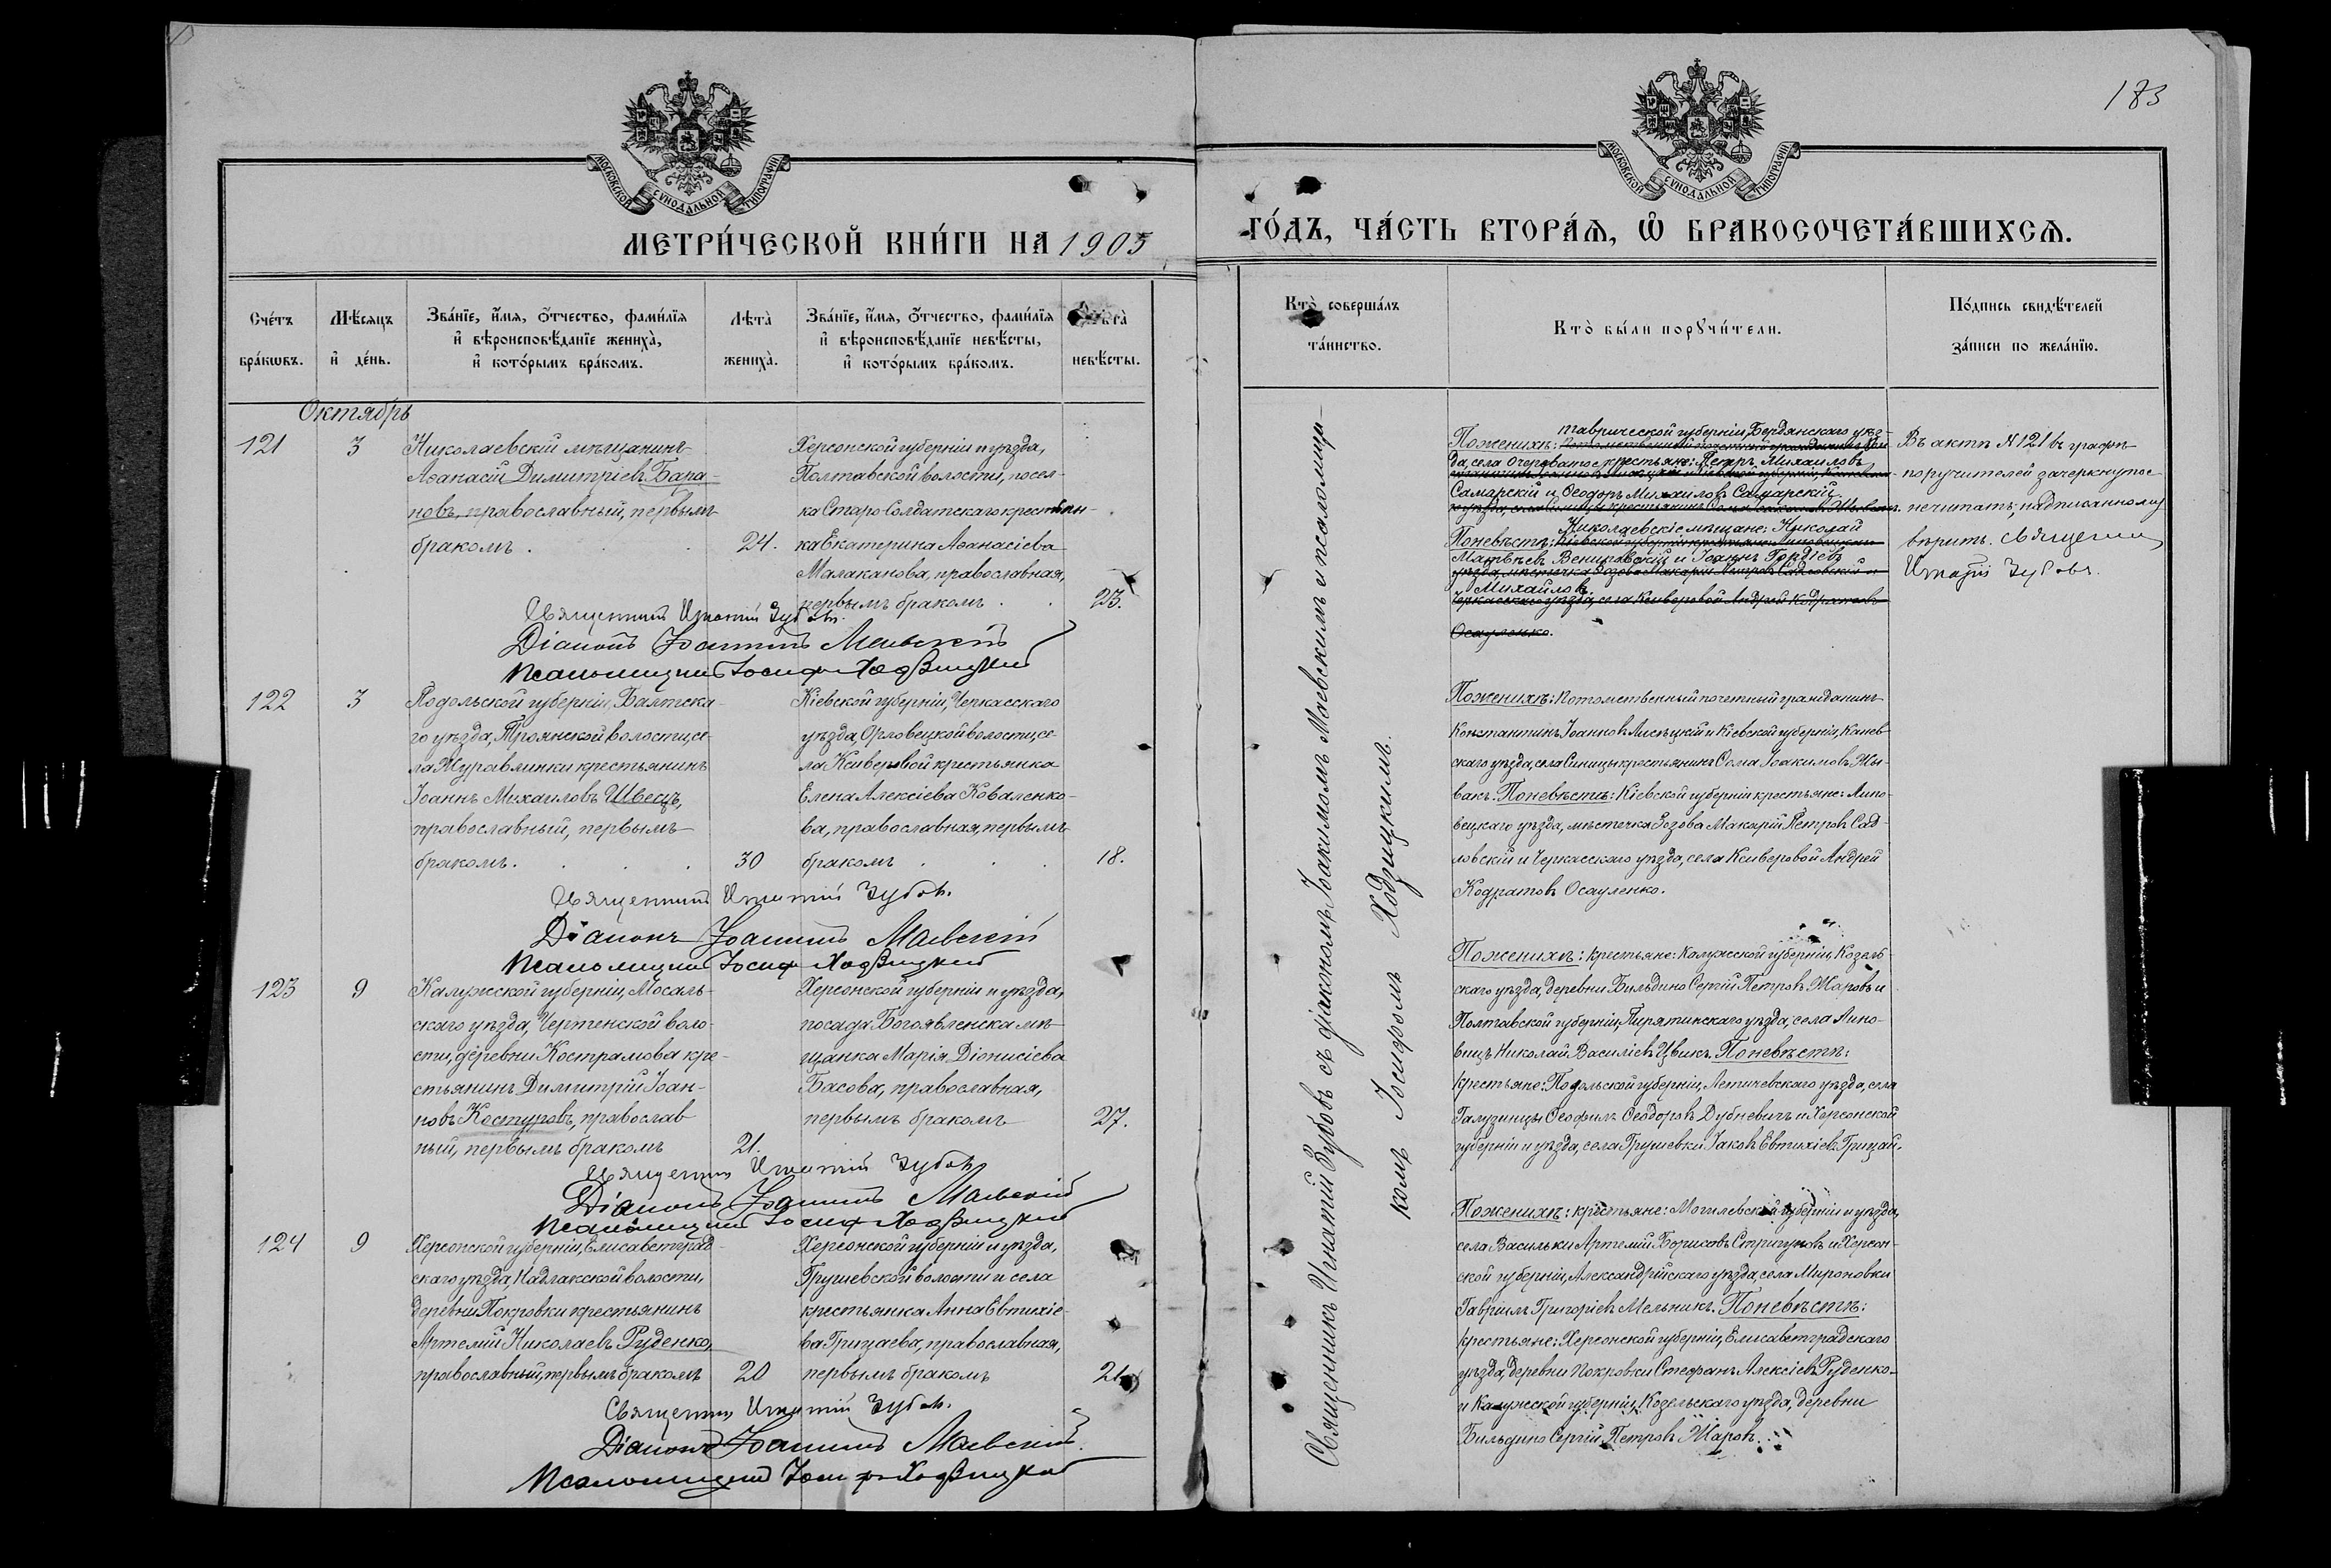 183
МОСКОВСКОЙ СѴНОДАЛЬНОЙ ТИПОГРАФІИ
МОСКОВСКОЙ СѴНОДАЛЬНОЙ ТИПОГРАФІИ
МЕТРИ́ЧЕСКОЙ КНИ́ГИ НА 1905
ГО́ДЪ, ЧА́СТЬ ВТОРА́Ѧ, Ѽ БРАКОСОЧЕТА́ВШИХСѦ.
Сче́тъ бра́кѡвъ.
Мѣ́сѧцъ и҆ де́нь.
Зва́нїе, и҆́мѧ, ѻ҆́тчество, фами́лїѧ
и҆ вѣроисповѣ́данїе жениха̀,
и҆ кото́рымъ бра́комъ.
Лѣта̀ жениха̀.
Зва́нїе, и҆́мѧ, ѻ҆́тчество, фами́лїѧ
и҆ вѣроисповѣ́данїе невѣ́сты,
и҆ кото́рымъ бра́комъ.
Лѣта̀ невѣ́сты.
Кто̀ соверша́лъ
та́инство.
Кто̀ бы́ли порꙋчи́тели.
По́дпись свидѣ́телей
за́писи по жела́нїю.
Октябрь
121
3
Николаевскій мѣщанинъ
Аѳанасій Димитріевъ Бара-
новъ, православный, первымъ
бракомъ.
24.
Херсонской губерніи и уѣзда,
Полтавской волости, посел-
ка Старо Солдатскаго крестьян-
ка Екатерина Аѳанасіева
Малаканова, православная,
первымъ бракомъ.
23.
Священникъ Игнатій Зубовъ.
Діаконъ Іоакимъ Маевскій
Псаломщикъ Іосифъ Ходзицкій
122
3
Подольской губерніи, Балтска-
го уѣзда, Троянской волости, се-
ла Журавлинки крестьянинъ
Іоаннъ Михаиловъ Швецъ,
православный, первымъ
бракомъ.
30
Кіевской губерніи, Черкасскаго
уѣзда, Орловецкой волости, се-
ла Ксиверовой крестьянка
Елена Алексіева Коваленко-
ва, православная, первымъ
бракомъ
18.
Священникъ Игнатій Зубовъ.
Діаконъ Іоакимъ Маевскій
Псаломщикъ Іосифъ Ходзицкій
123
9
Калужской губерніи, Мосаль-
скаго уѣзда, Чертенской воло-
сти, деревни Кострамова кре-
стьянинъ Димитрій Іоан-
новъ Костуровъ, православ
ный, первымъ бракомъ
21.
Херсонской губерніи и уѣзда,
посада Богоявленска мѣ-
щанка Марія Діонисіева
Басова, православная,
первымъ бракомъ
27.
Священникъ Игнатій Зубовъ
Діаконъ Іоакимъ Маевскій
Псаломщикъ Іосифъ Ходзицкій
124
9
Херсонской губерніи, Елисаветград-
скаго уѣзда, Надлакской волости,
деревни Покровки крестьянинъ
Артемій Николаевъ Руденко,
православный, первымъ бракомъ
20
Херсонской губерніи и уѣзда,
Грушевской волости и села
крестьянка Анна Евтихіе-
ва Грицаева, православная,
первымъ бракомъ
21.
Священникъ Игнатій Зубовъ.
Діаконъ Іоакимъ Маевскій.
Псаломщикъ Іосифъ Ходзицкій
Священникъ Игнатій Зубовъ съ діакономъ Іоакимомъ Маевскимъ и псаломщи-
комъ Іосифомъ Ходзицкимъ.
Таврической губерніи, Бердянскаго уѣз-
По женихѣ: Потомственный почетный гражданинъ Кон
да, села Очереватое крестьяне: Петръ Михаиловъ
Самарскій и Ѳеодоръ Михаиловъ Самарскій.
Николаевскіе мѣщане: Николай
По невѣстѣ: Кіевской губерніи крестьяне: Липовецкаго
Матвѣевъ Вениговскій и Іоаннъ Гордіевъ
уѣзда, мѣстечка Зозова Макарій Петровъ Садловскій и
Михайловъ.
Черкасскаго уѣзда, села Ксиверовой Андрей Кодратовъ
Осауленко.
Въ актѣ №121 въ графѣ
поручителей зачеркнутое
не читать, надписанному
вѣрить. Священникъ
Игнатій Зубовъ.
По женихѣ: Потомственный почетный гражданинъ
Константинъ Іоанновъ Лисѣцкій и Кіевской губерніи, Канев-
скаго уѣзда, села Синицы крестьянинъ Ѳома Іоакимовъ Жы-
вакъ. По невѣстѣ: Кіевской губерніи крестьяне: Липо-
вецкаго уѣзда, мѣстечка Зозова Макарій Петровъ Сад-
ловскій и Черкасскаго уѣзда, села Ксиверовой Андрей
Кодратовъ Осауленко.
По женихѣ: крестьяне: Калужской губерніи, Козель-
скаго уѣзда, деревни Бильдино Сергій Петровъ Жаровъ и
Полтавской губерніи, Пирятинскаго уѣзда, села Липо-
вицъ Николай Василіевъ Цвикъ. По невѣстѣ:
крестьяне: Подольской губерніи, Летичевскаго уѣзда, села
Галузинцы Ѳеофилъ Ѳеодоровъ Дубневичъ и Херсонской
губерніи и уѣзда, села Грушевки Іаковъ Евтихіевъ Грицай.
По женихѣ: крестьяне: Могилевской губерніи и уѣзда,
села Васильки Артемій Борисовъ Стригуновъ и Херсон-
ской губерніи, Александрійскаго уѣзда, села Мироновки
Гавріилъ Григоріевъ Мельникъ. По невѣстѣ:
крестьяне: Херсонской губерніи, Елисаветградскаго
уѣзда, деревни Покровки Стефанъ Алексіевъ Руденко
и Калужской губерніи, Козельскаго уѣзда, деревни
Бильдино Сергій Петровъ Жаровъ.